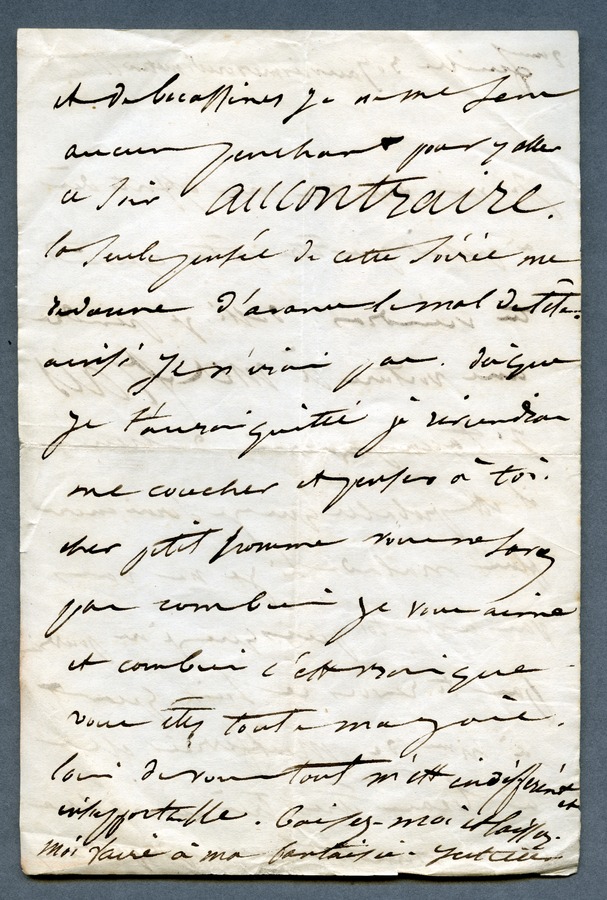 et de bécassines je ne me sens
aucun penchant pour y aller
ce soir au contraire.
la seule pensée de cette soirée me
redonne d'avance le mal de tête.
ainsi je n'irai pas. dès que
je t'aurai quitté je reviendrai
me coucher et penser à toi.
cher petit homme vous ne savez
pas combien je vous aime
et combien c'est vrai que
vous êtes toute ma joie.
loin de vous tout m'est indifférent et
insupportable. Baisez-moi et laissez-
moi faire à ma fantaisie. Juliette